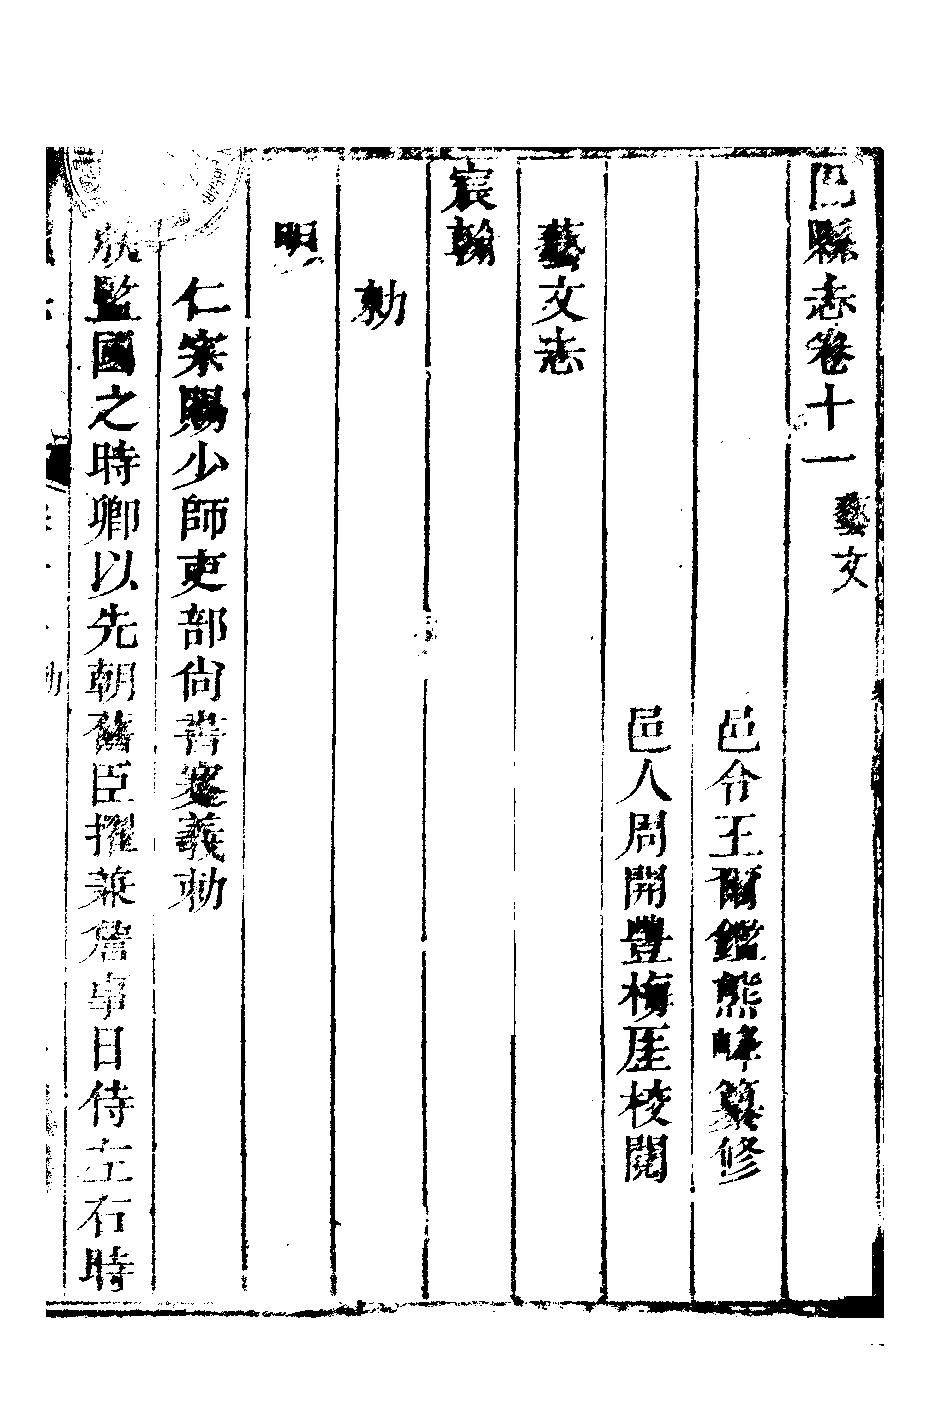 巴縣志卷十一 藝文
邑令王爾鑑熊峰纂修
邑人周開豐梅厓校閱
藝文志
宸翰
勅
明
仁宗賜少師吏部尚書蹇義勅
朕監國之時卿以先朝舊臣擢兼詹事日侍左右時